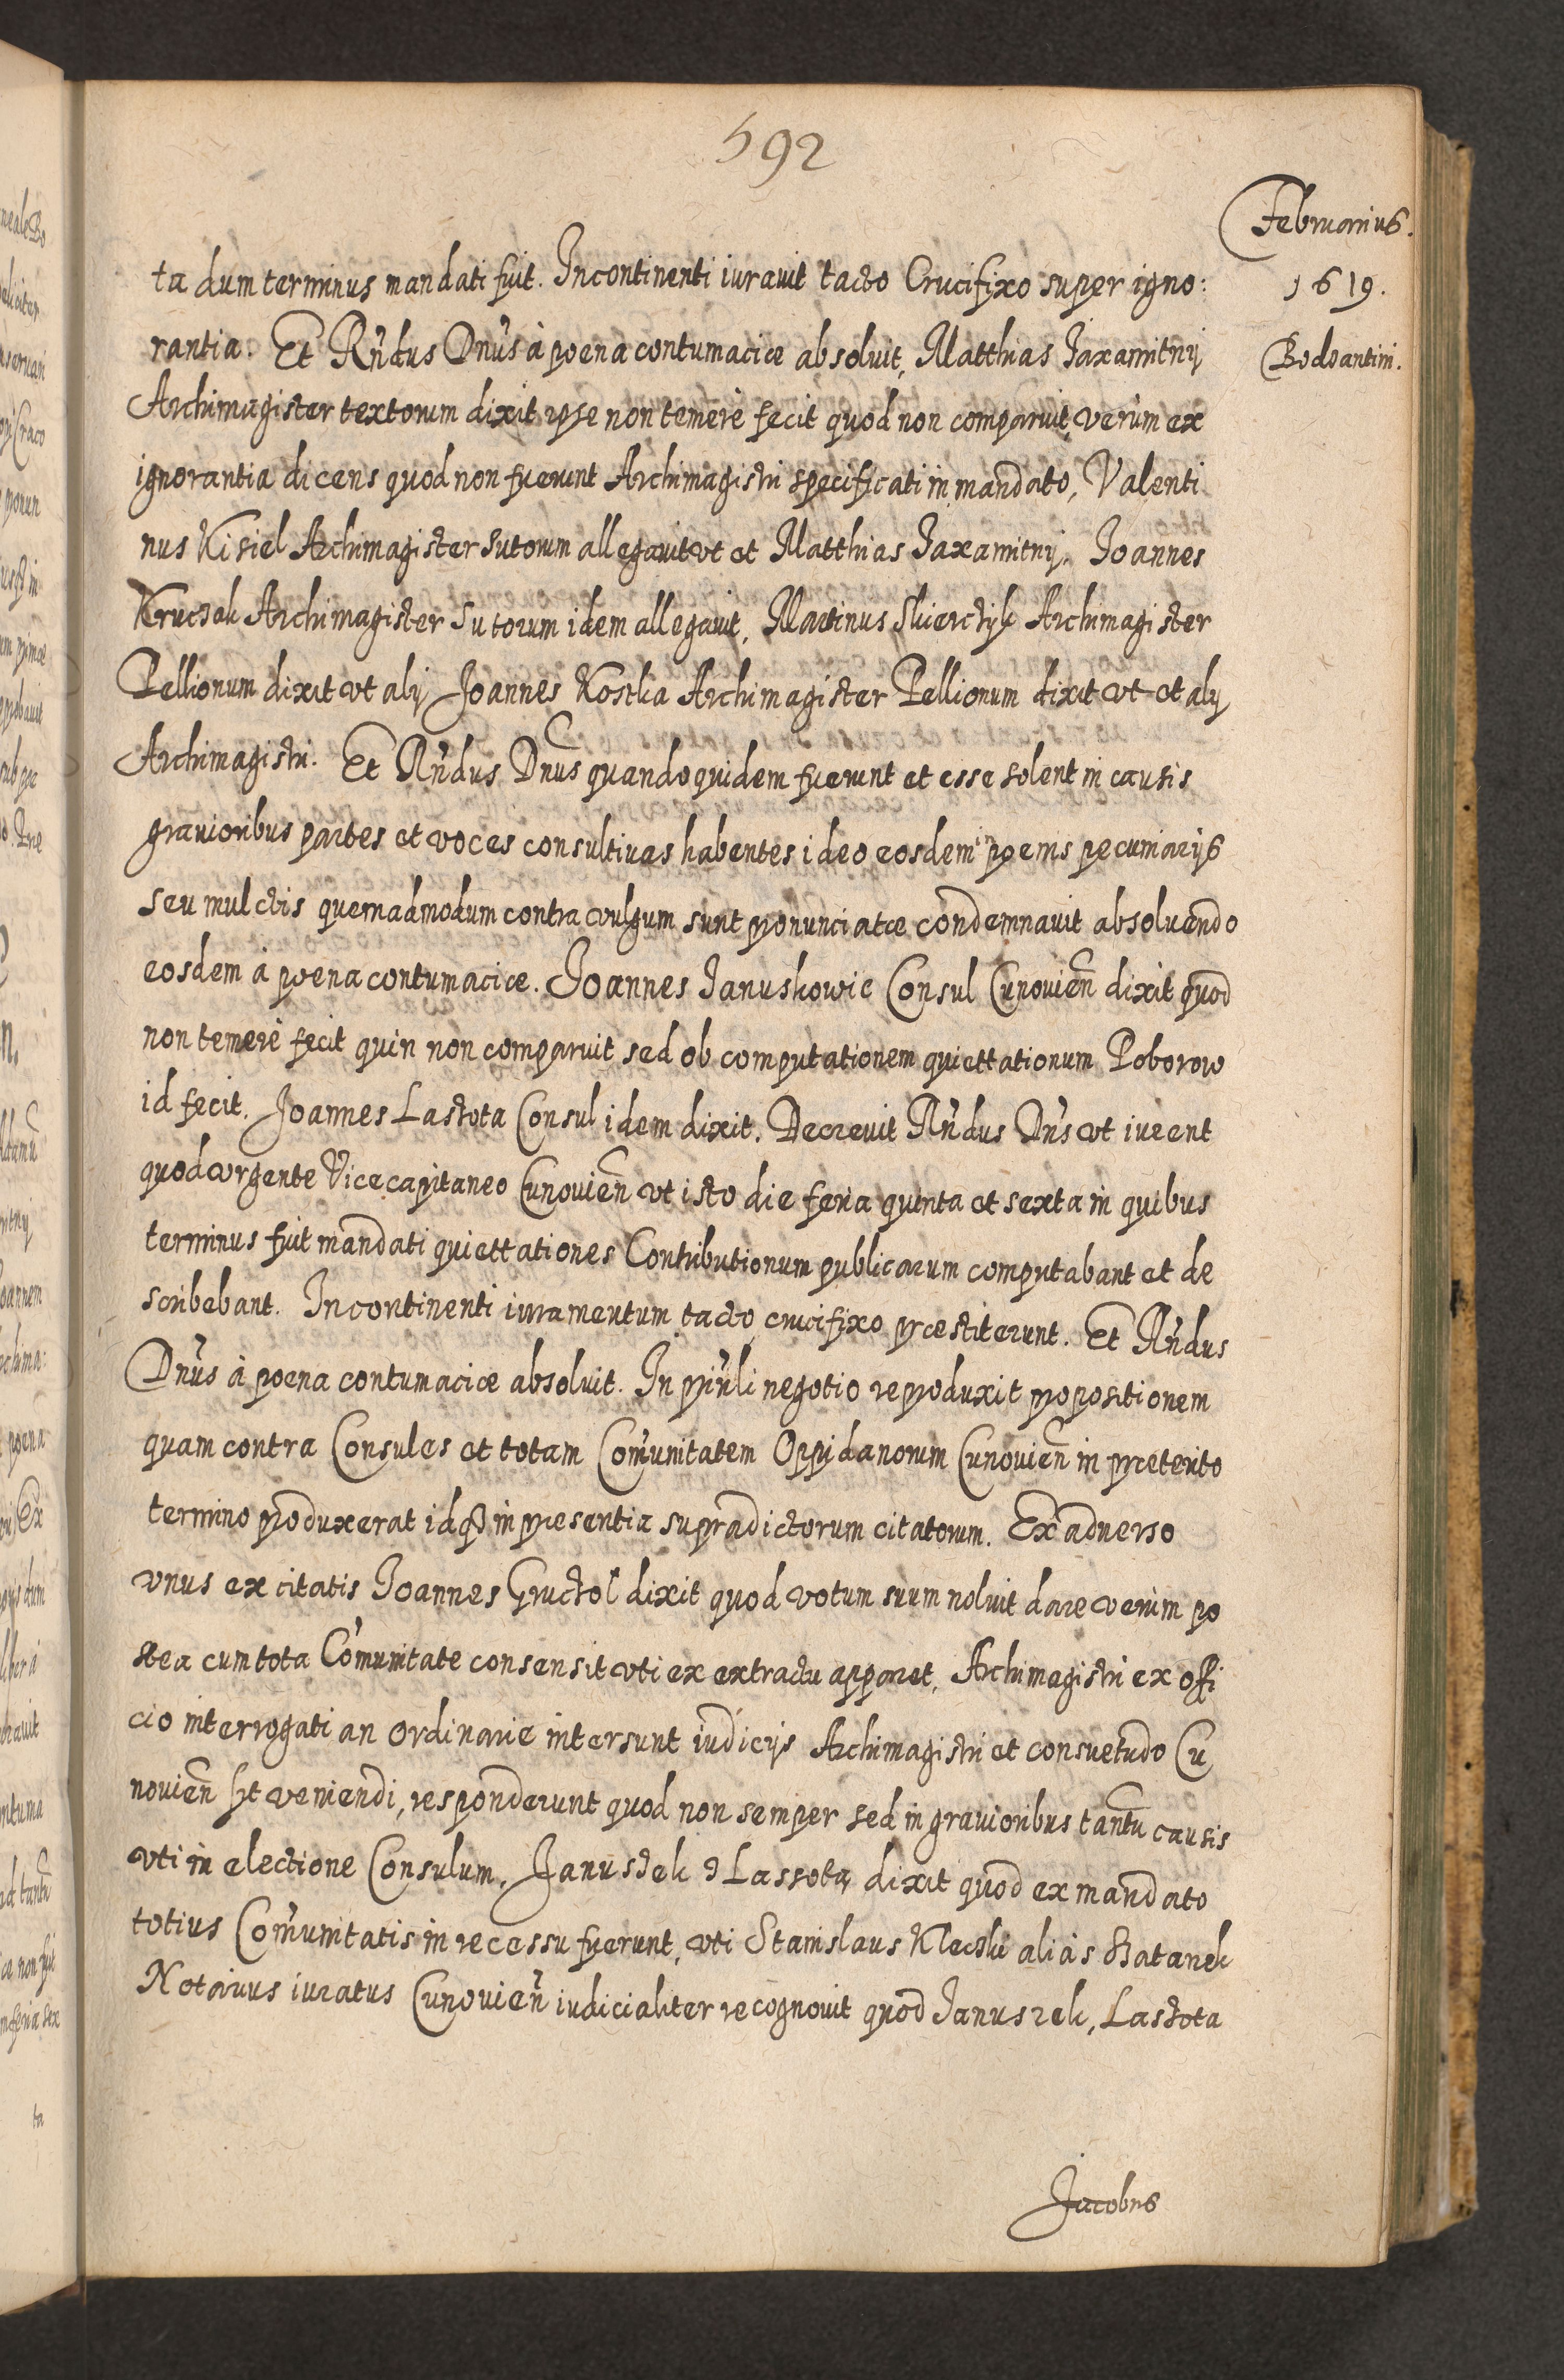 592
Februarius.
1619.
Bodzantini.
ta dum terminus mandati fuit. Incontinenti iuravit tacto Crucifixo super igno:
rantia. Et Rndus Dnus à poena contumaciæ absoluit, Matthias Jaxamitny
Archimagister textorum dixit ipse non temerè fecit quod non comparuit, verùm ex
ignorantia dicens quod non fuerunt Archimagistri specificati in mandato, Valenti
nus Kisiel Archimagister Sutorum allegavit vt et Matthias Jaxamitny. Joannes
Kruczek Archimagister Sutorum idem allegavit, Martinus Skierczyk Archimagister
Pellionum dixit vt alij Joannes Kostka Archimagister Pellionum dixit vt et alij
Archimagistri. Et Rndus Dnus quandoquidem fuerunt et esse solent in causis
grauioribus partes et voces consultiuas habentes ideo eosdem poenis pecuniarijs
seu mulctis quemadmodum contra vulgum sunt pronunciatæ condemnauit absoluendo
eosdem à poena contumaciæ. Joannes Januskowic Consul Cunouien dixit quod
non temerè fecit quin non comparuit sed ob computationem quiettationum Poborow
id fecit. Joannes Laszota Consul idem dixit. Decreuit Rndus Dns vt iurent
quod vrgente Vicecapitaneo Cunouien vt isto die feria quinta et sexta in quibus
terminus fuit mandati quiettationes Contributionum publicarum computabant et de
scribebant. Incontinenti iuramentum tacto crucifixo præstiterunt. Et Rndus
Dnus à poena contumaciæ absoluit. In prinli negotio reproduxit propositionem
quam contra Consules et totam Comunitatem Oppidanorum Cunouien in preterito
termino produxerat idq in presentia supradictorum citatorum. Ex aduerso
vnus ex citatis Joannes Gruczol dixit quod votum suum noluit dare verùm po
stea cum tota Comunitate consensit vti ex extractu apparet, Archimagistri ex offi
cio interrogati an ordinarie intersunt iudicijs Archimagistri et consuetudo Cu
nouien sit veniendi, responderunt quod non semper sed in grauioribus tantu causis
vti in electione Consulum, Janusdek & Lassota dixit quod ex mandato
totius Comunitatis in recessu fuerunt, vti Stanislaus Kleczki aliàs Batanek
Notarius iuratus Cunouien iudicialiter recognouit quod Januszek, Laszota
Jacobus